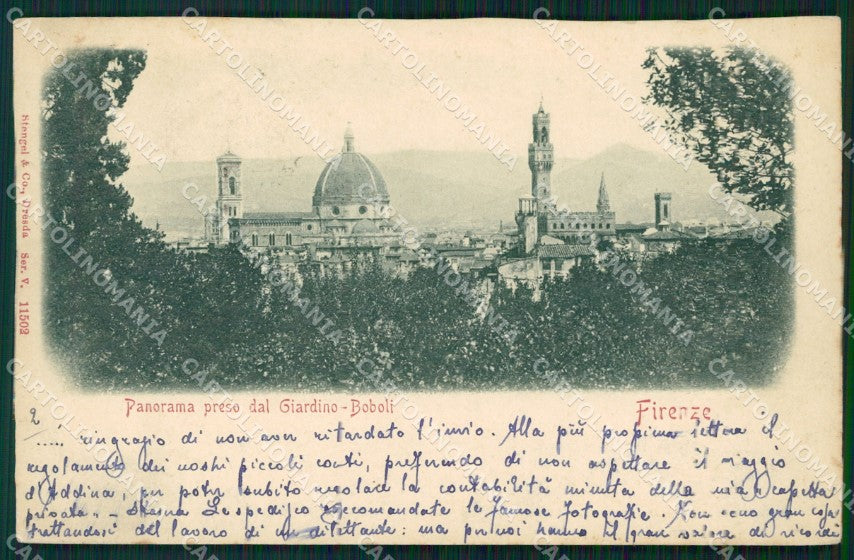 Stengel & Co., Dresda Ser. V. 11502
Panorama preso dal Giardino-Boboli
Firenze
2/..... ringrazio di non aver ritardato l'invio. Alla più prossima lettera il
regolamento dei nostri piccoli conti, preferendo di non aspettare il viaggio
d'Addina, per poter subito regolare la contabilità minuta della mia
privata. - Stasera Le spedisco raccomandate le famose fotografie. Non sono gran cosa
trattandosi del lavoro di un dilettante: ma per noi hanno il gran valore dei ricordi
CARTOLINOMANIA